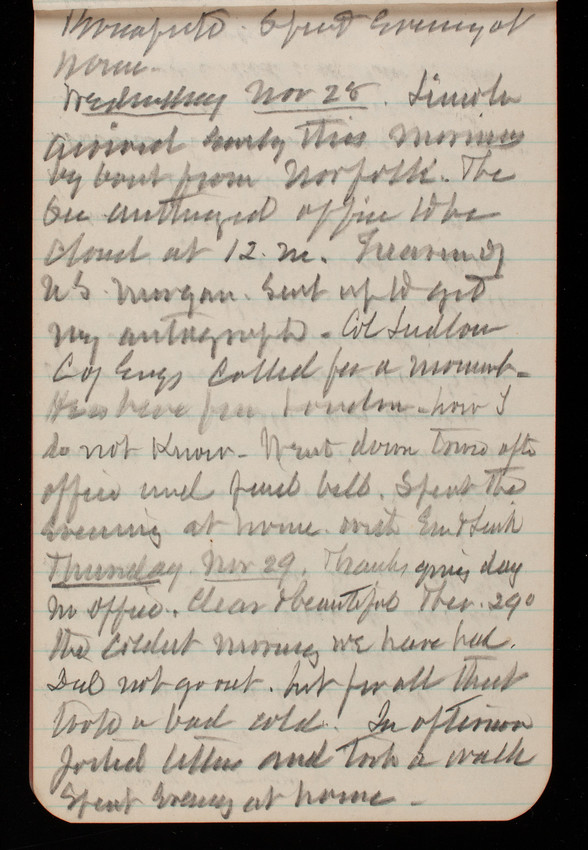 Spent Evening at
home.
Wednesday Nov 28. Lincoln
arrived Early this morning
by boat from Norfolk. The
Sec authorized office to be
Closed at 12. m. Treasurer of
U S. Morgan. Sent up to get
my autograph - Col Ludlow
Cof Engs Called for a moment-
Has been London - how I
do not Know - Went down town after
office and paid bill. Spent the
Evening at home with Em & Link
Thursday Nov 29. Thanksgiving day
no office. Clear & beautiful Ther. 29°
the Coldest morning we have had.
Did not go out. but for all that
took a bad cold. In afternoon
posted letters and took a walk
Spent Evening at home -